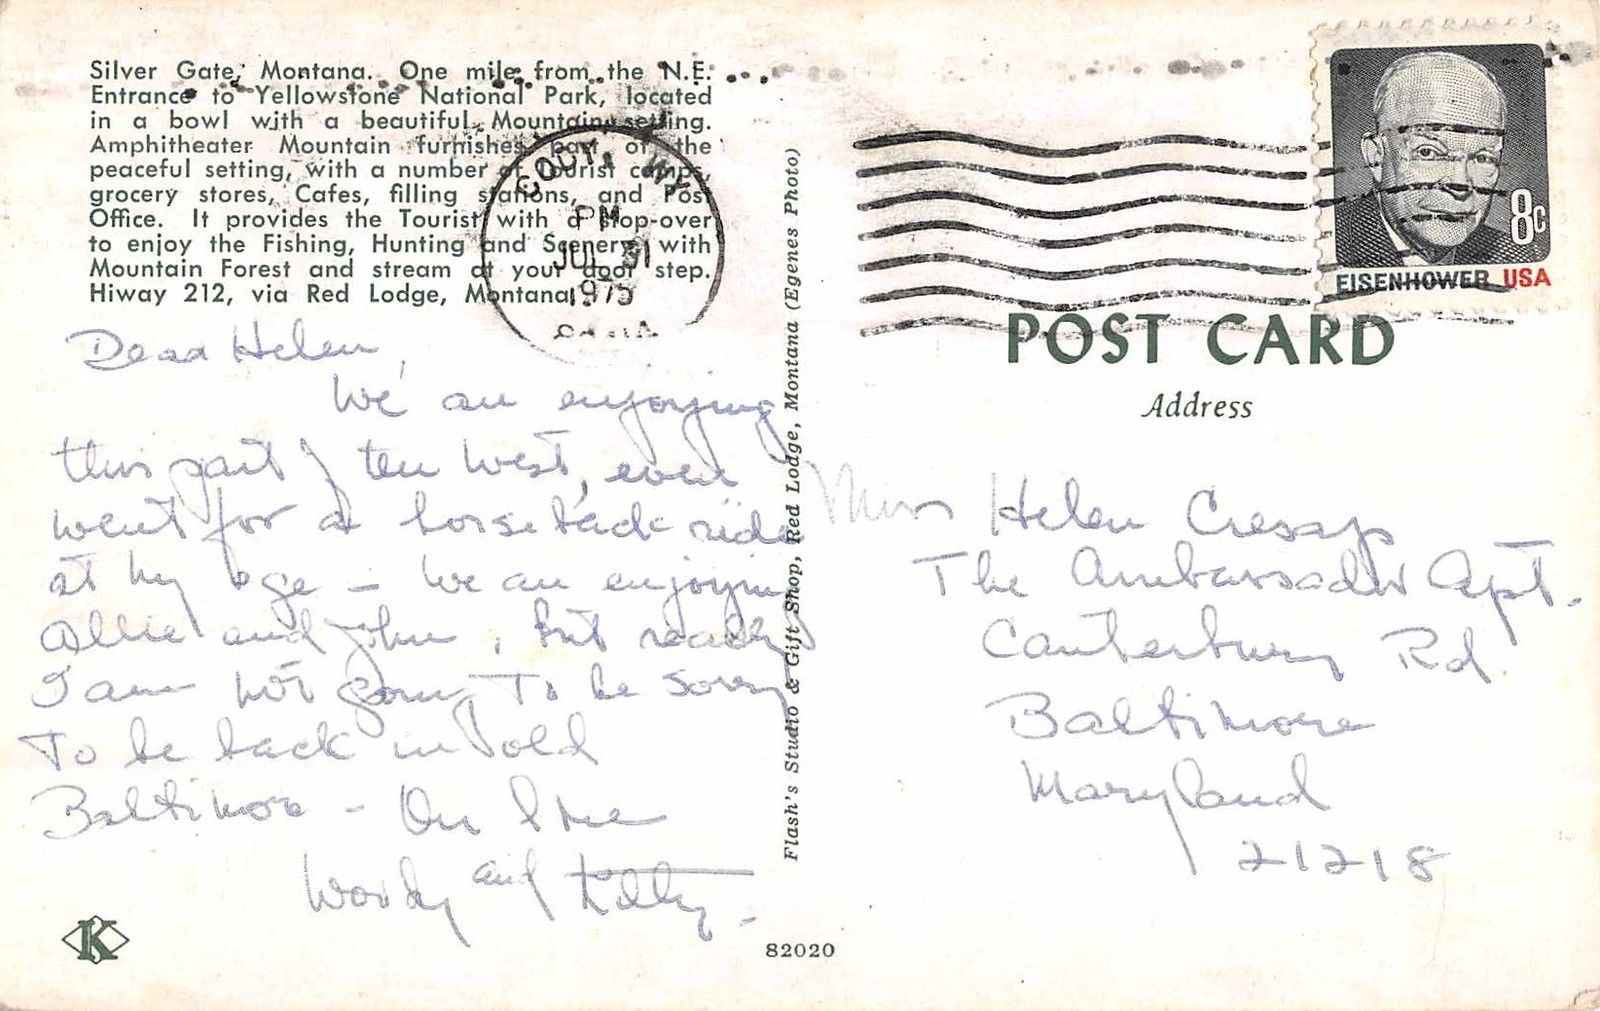 Silver Gate, Montana. One mile from the N.E.
Entrance to Yellowstone National Park, located
in a bowl with a beautiful Mountain setting.
Amphitheater Mountain furnishes part of the
peaceful setting, with a number of Tourist camps,
grocery stores, Cafes, filling stations, and Post
Office. It provides the Tourist with a stop-over
to enjoy the Fishing, Hunting and Scenery, with
Mountain Forest and stream at your door step.
Hiway 212, via Red Lodge, Montana.
CODY WY
PM
JUL 31
1975
8c
EISENHOWER USA
Dear Helen,
We are enjoying
this part of the West, even
went for a horseback ride
at my age - We are enjoying
Allie and John, but really
I am not going to be sorry
To be back in old
Baltimore - Our love
Woody and
K
Flash's Studio & Gift Shop, Red Lodge, Montana (Egenes Photo)
82020
POST CARD
Address
Miss Helen Cresap
The Ambassador Apt.
Canterbury Rd
Baltimore
Maryland
21218